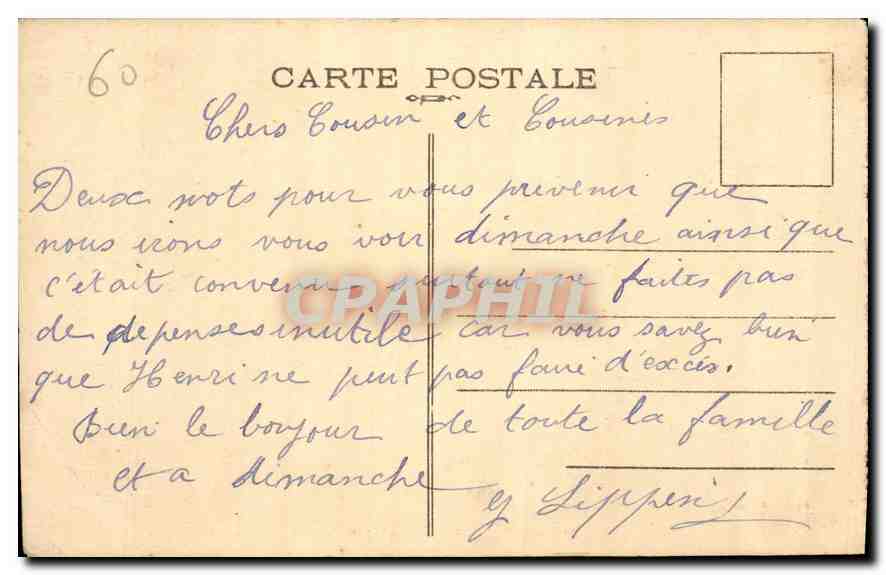 60
CARTE POSTALE
Chers Cousin et Cousines
Deux mots pour vous prevenir que
nous irons vous voir dimanche ainsi que
c'était convenu surtout ne faites pas
de depenses inutile car vous savez bien
que Henri ne peut pas faire d'excés.
Bien le bonjour de toute la famille
et a dimanche
CPAPHIL